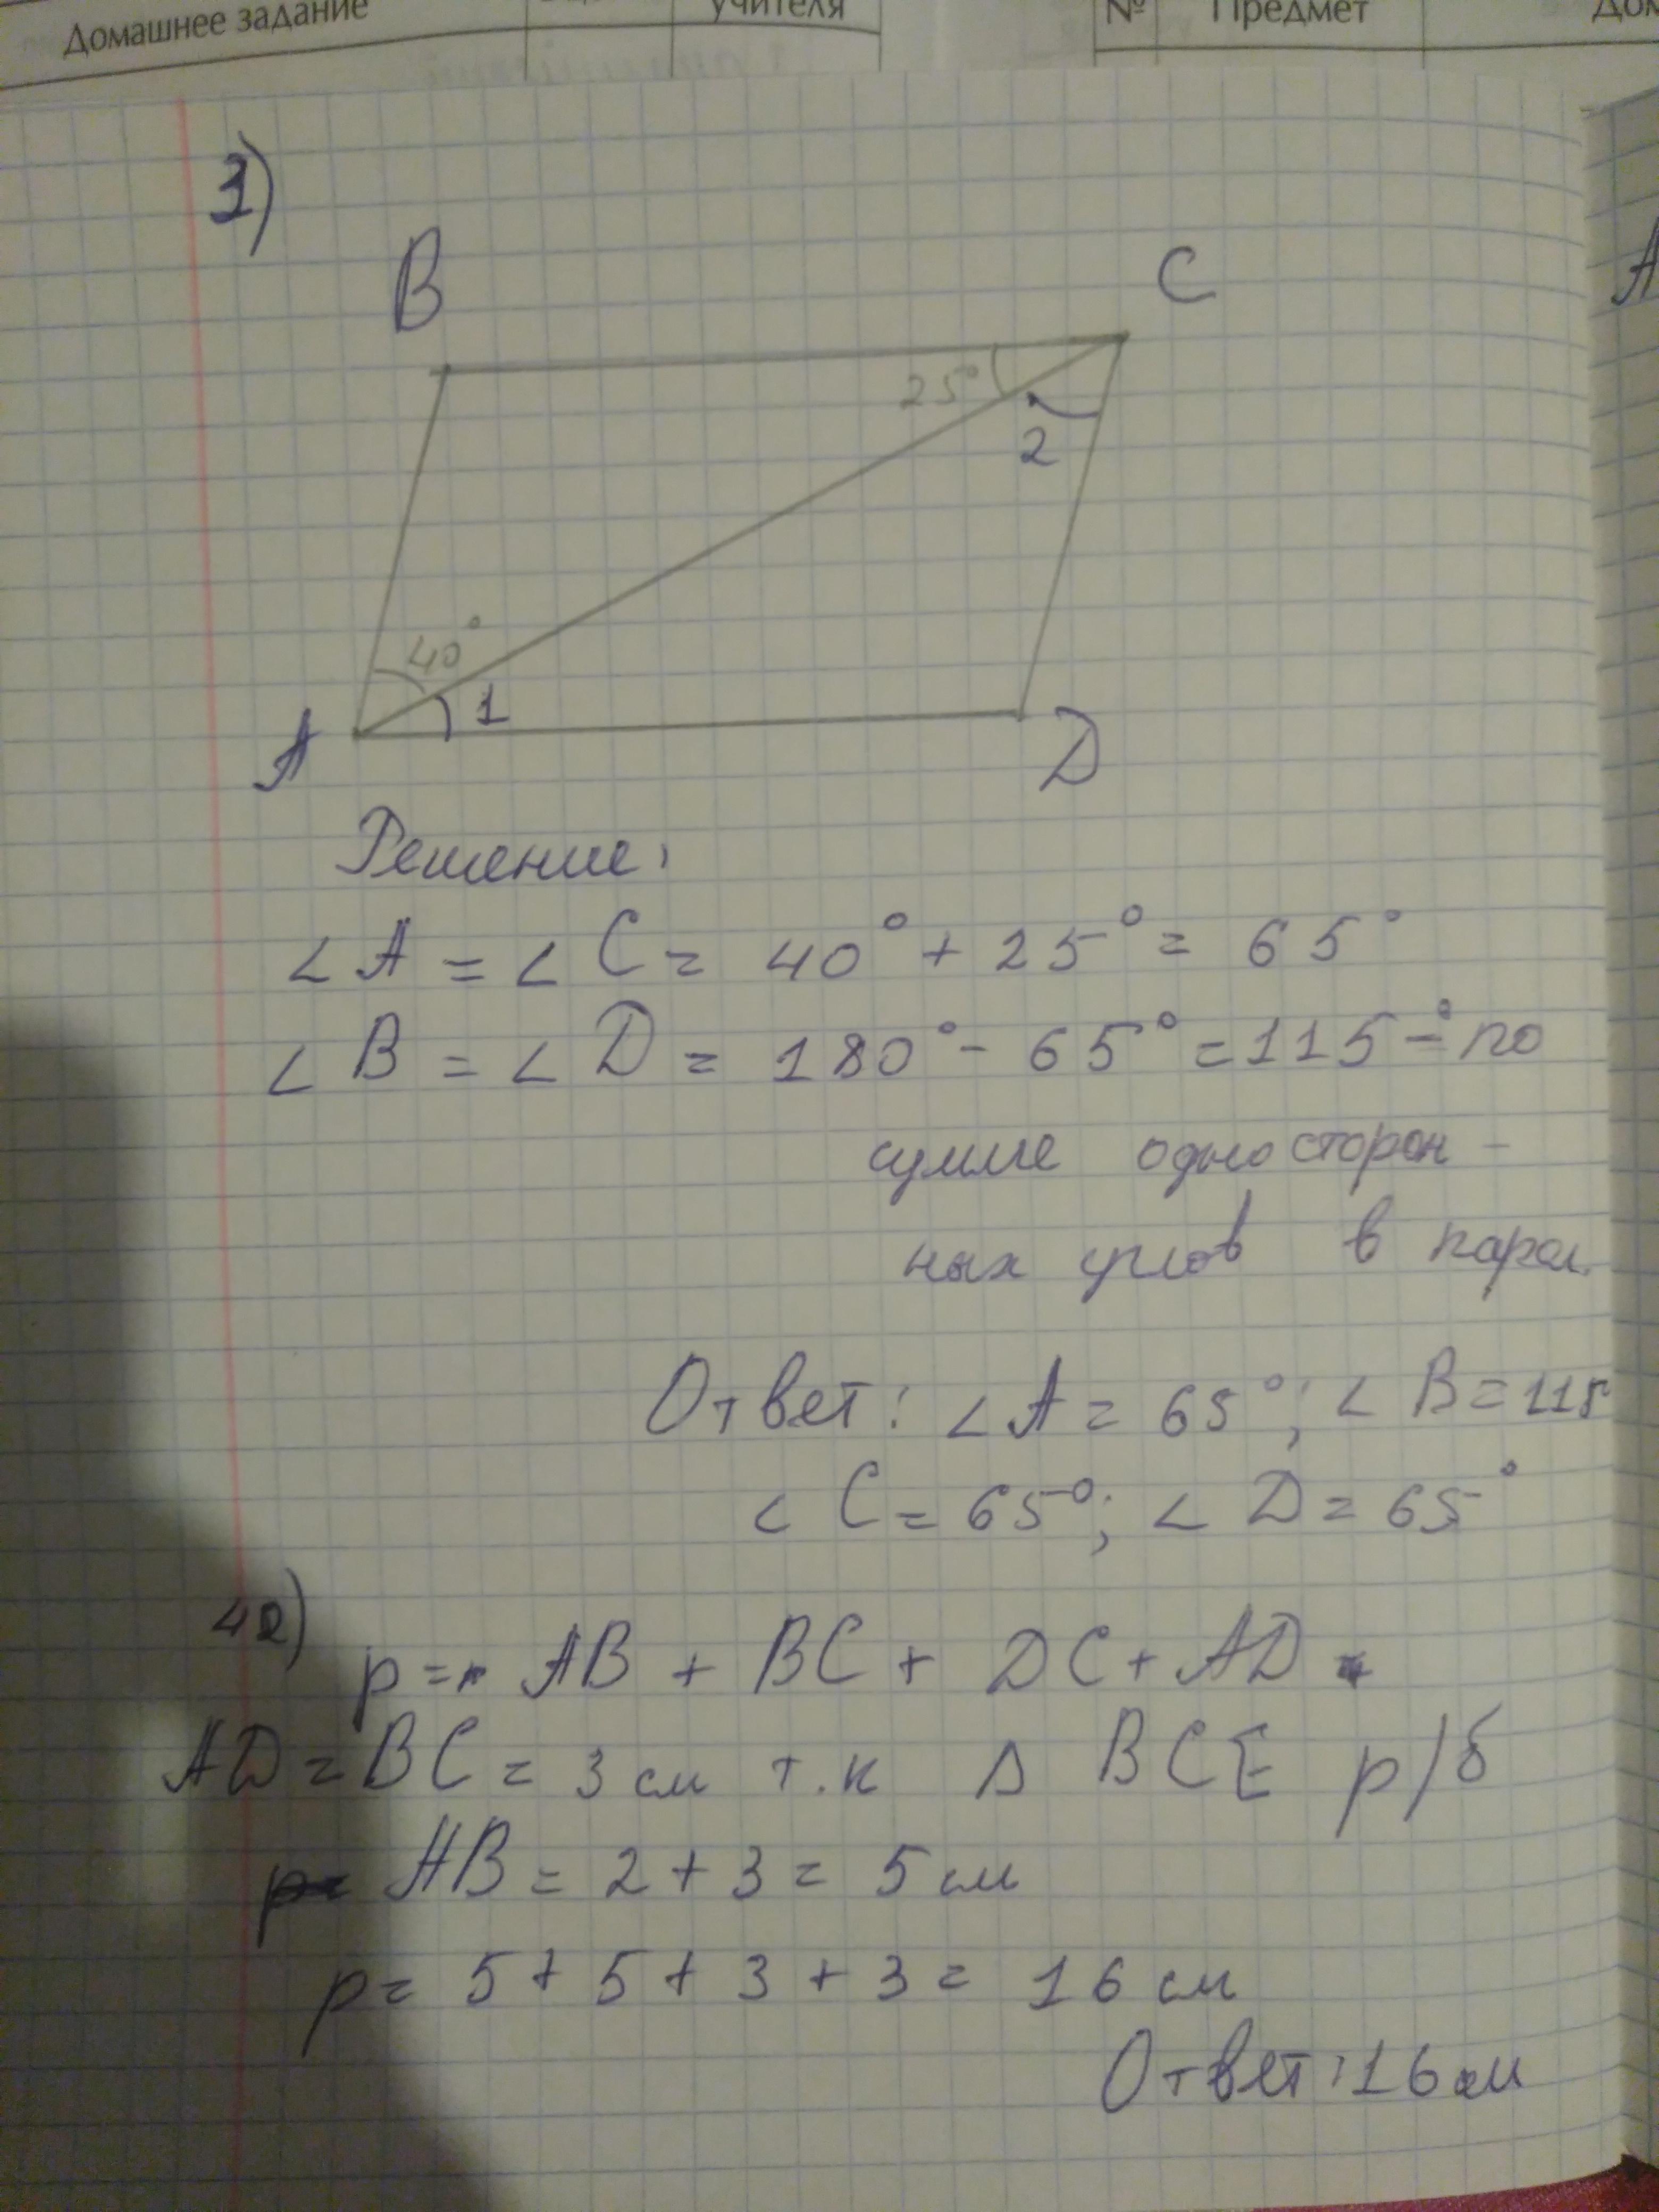 Домашнее задание
учителя
№ Предмет
1)
B
C
25°
2
40°
1
A
D
Решение:
∠A = ∠C = 40° + 25° = 65°
∠B = ∠D = 180° - 65° = 115° - по
сумме односторон -
ных углов в парал.
Ответ: ∠A = 65°; ∠B = 115
∠C = 65°; ∠D = 65°
p = AB + BC + DC + AD
AD = BC = 3 см т.к Δ BCE р/б
AB = 2 + 3 = 5 см
p = 5 + 5 + 3 + 3 = 16 см
Ответ: 16 см